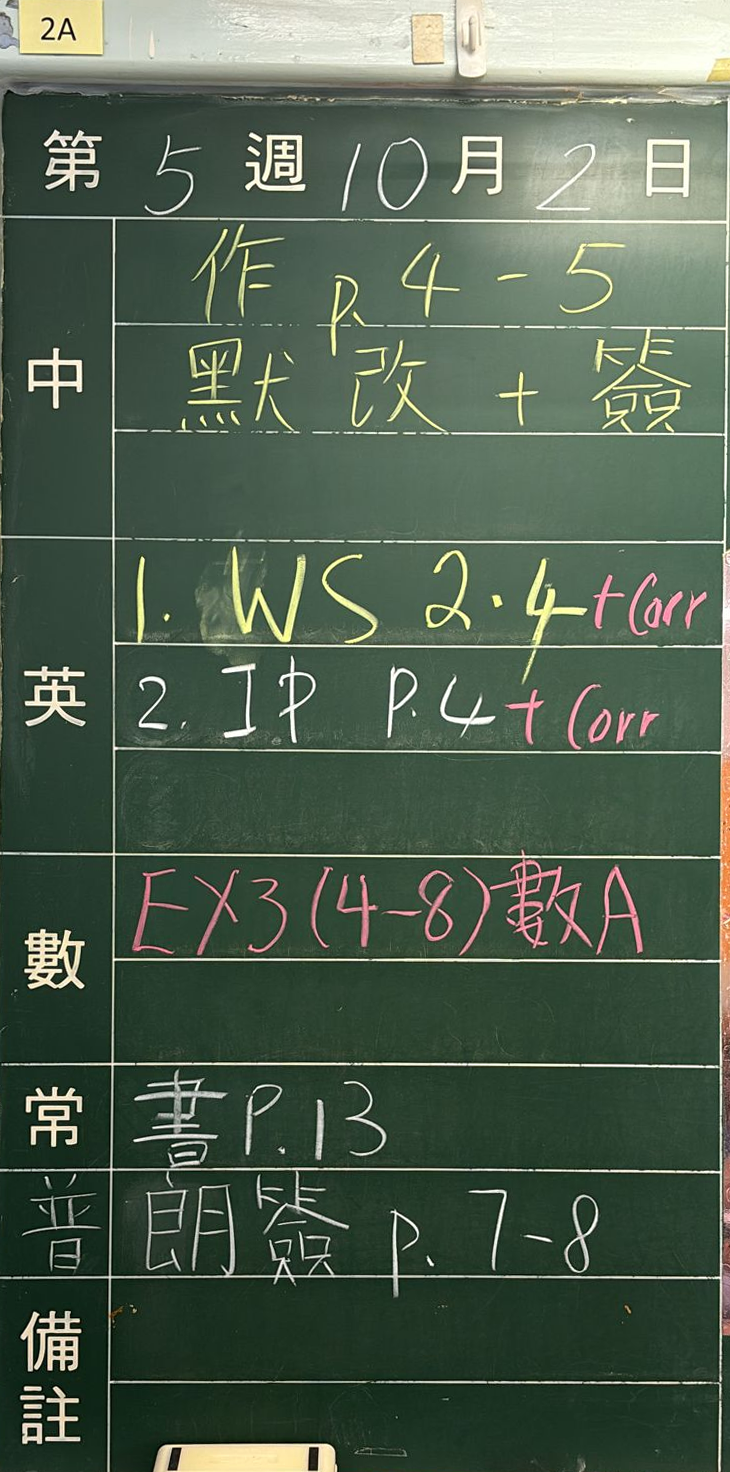 2A
第 5 週 10 月 2 日
中
作 p. 4 - 5
默 改 + 簽
英
1. WS 2.4 + Corr
2. IP P.4 + Corr
數
EX3 (4-8) 數A
常
書 P.13
普
朗簽 p. 7-8
備註